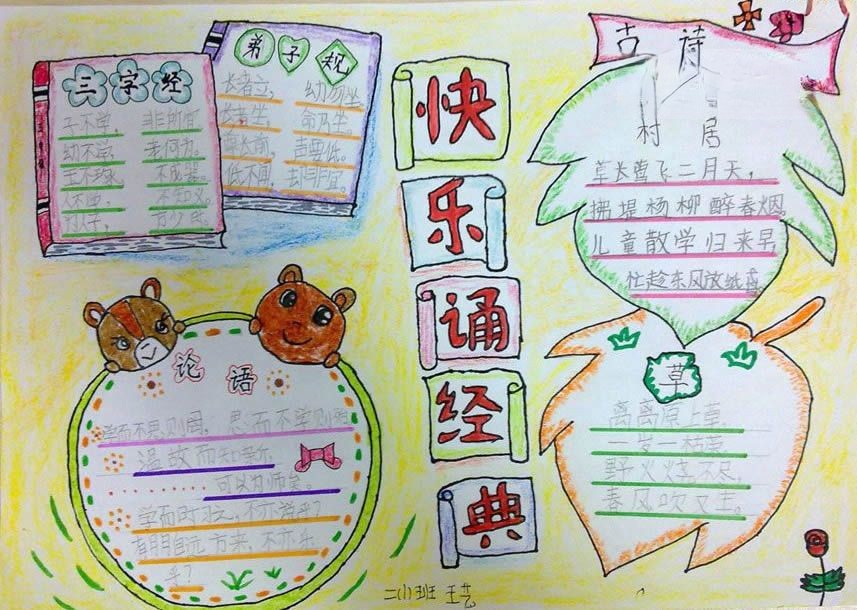 快乐诵经典
三字经
子不学,非所宜
幼不学,老何为。
玉不琢,不成器。
人不 不知义。
人子,方少时
弟子规
长者立,幼勿坐,
长者坐,命乃坐。
尊长前,声要低。
低不闻,却非宜。
论语
学而不思则罔,思而不学则殆
温故而知新
可以为师矣。
学而时习之,不亦说乎?
有朋自远方来,不亦乐
乎?
古诗
村居
草长莺飞二月天,
拂堤杨柳醉春烟。
儿童散学归来早,
忙趁东风放纸鸢。
草
离离原上草,
一岁一枯荣。
野火烧不尽,
春风吹又生。
班 王艺